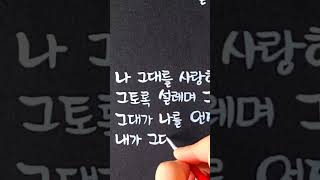 나 그대를 사랑하
그토록 설레며 그
그대가 나를 언
내가 그다